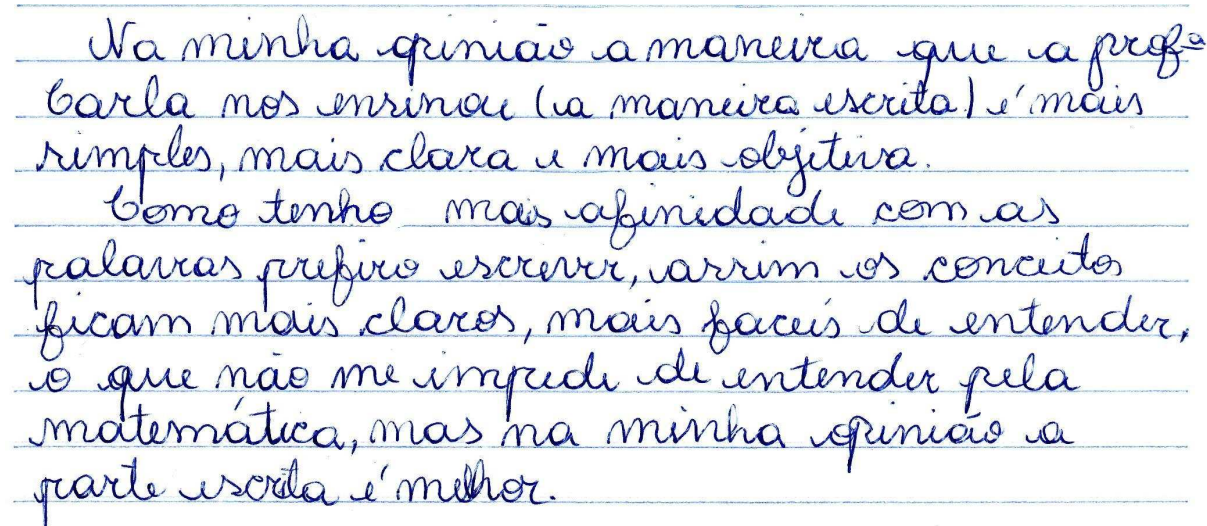 Na minha opinião a maneira que a profª
Carla nos ensinou (a maneira escrita) é mais
simples, mais clara e mais objetiva.
Como tenho mais afinidade com as
palavras prefiro escrever, assim os conceitos
ficam mais claros, mais faceis de entender,
o que não me impede de entender pela
matemática, mas na minha opinião a
parte escrita é melhor.